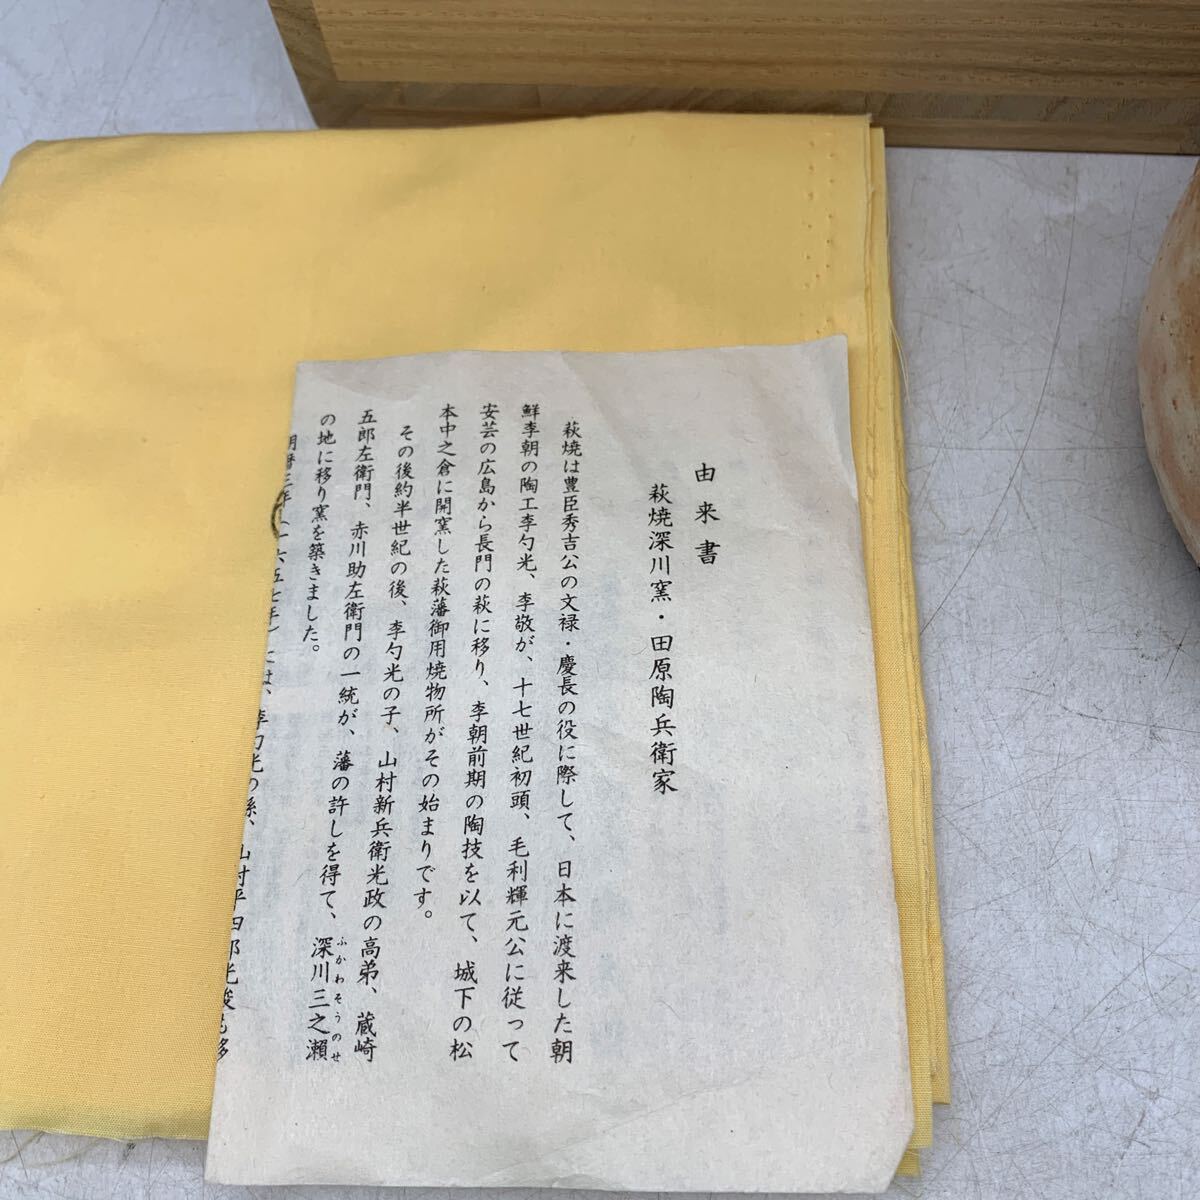 由来書
萩焼深川窯・田原陶兵衛家
萩焼は豊臣秀吉公の文禄・慶長の役に際して、日本に渡来した朝
鮮李朝の陶工李勺光、李敬が、十七世紀初頭、毛利輝元公に従って
安芸の広島から長門の萩に移り、李朝前期の陶技を以て、城下の松
本中之倉に開窯した萩藩御用焼物所がその始まりです。
その後約半世紀の後、李勺光の子、山村新兵衛光政の高弟、蔵崎
五郎左衛門、赤川助左衛門の一統が、藩の許しを得て、深川三之瀬
ふかわそうのせ
の地に移り窯を築きました。
明暦三年（一六五七年）には、李勺光の孫、山村平四郎光俊も移